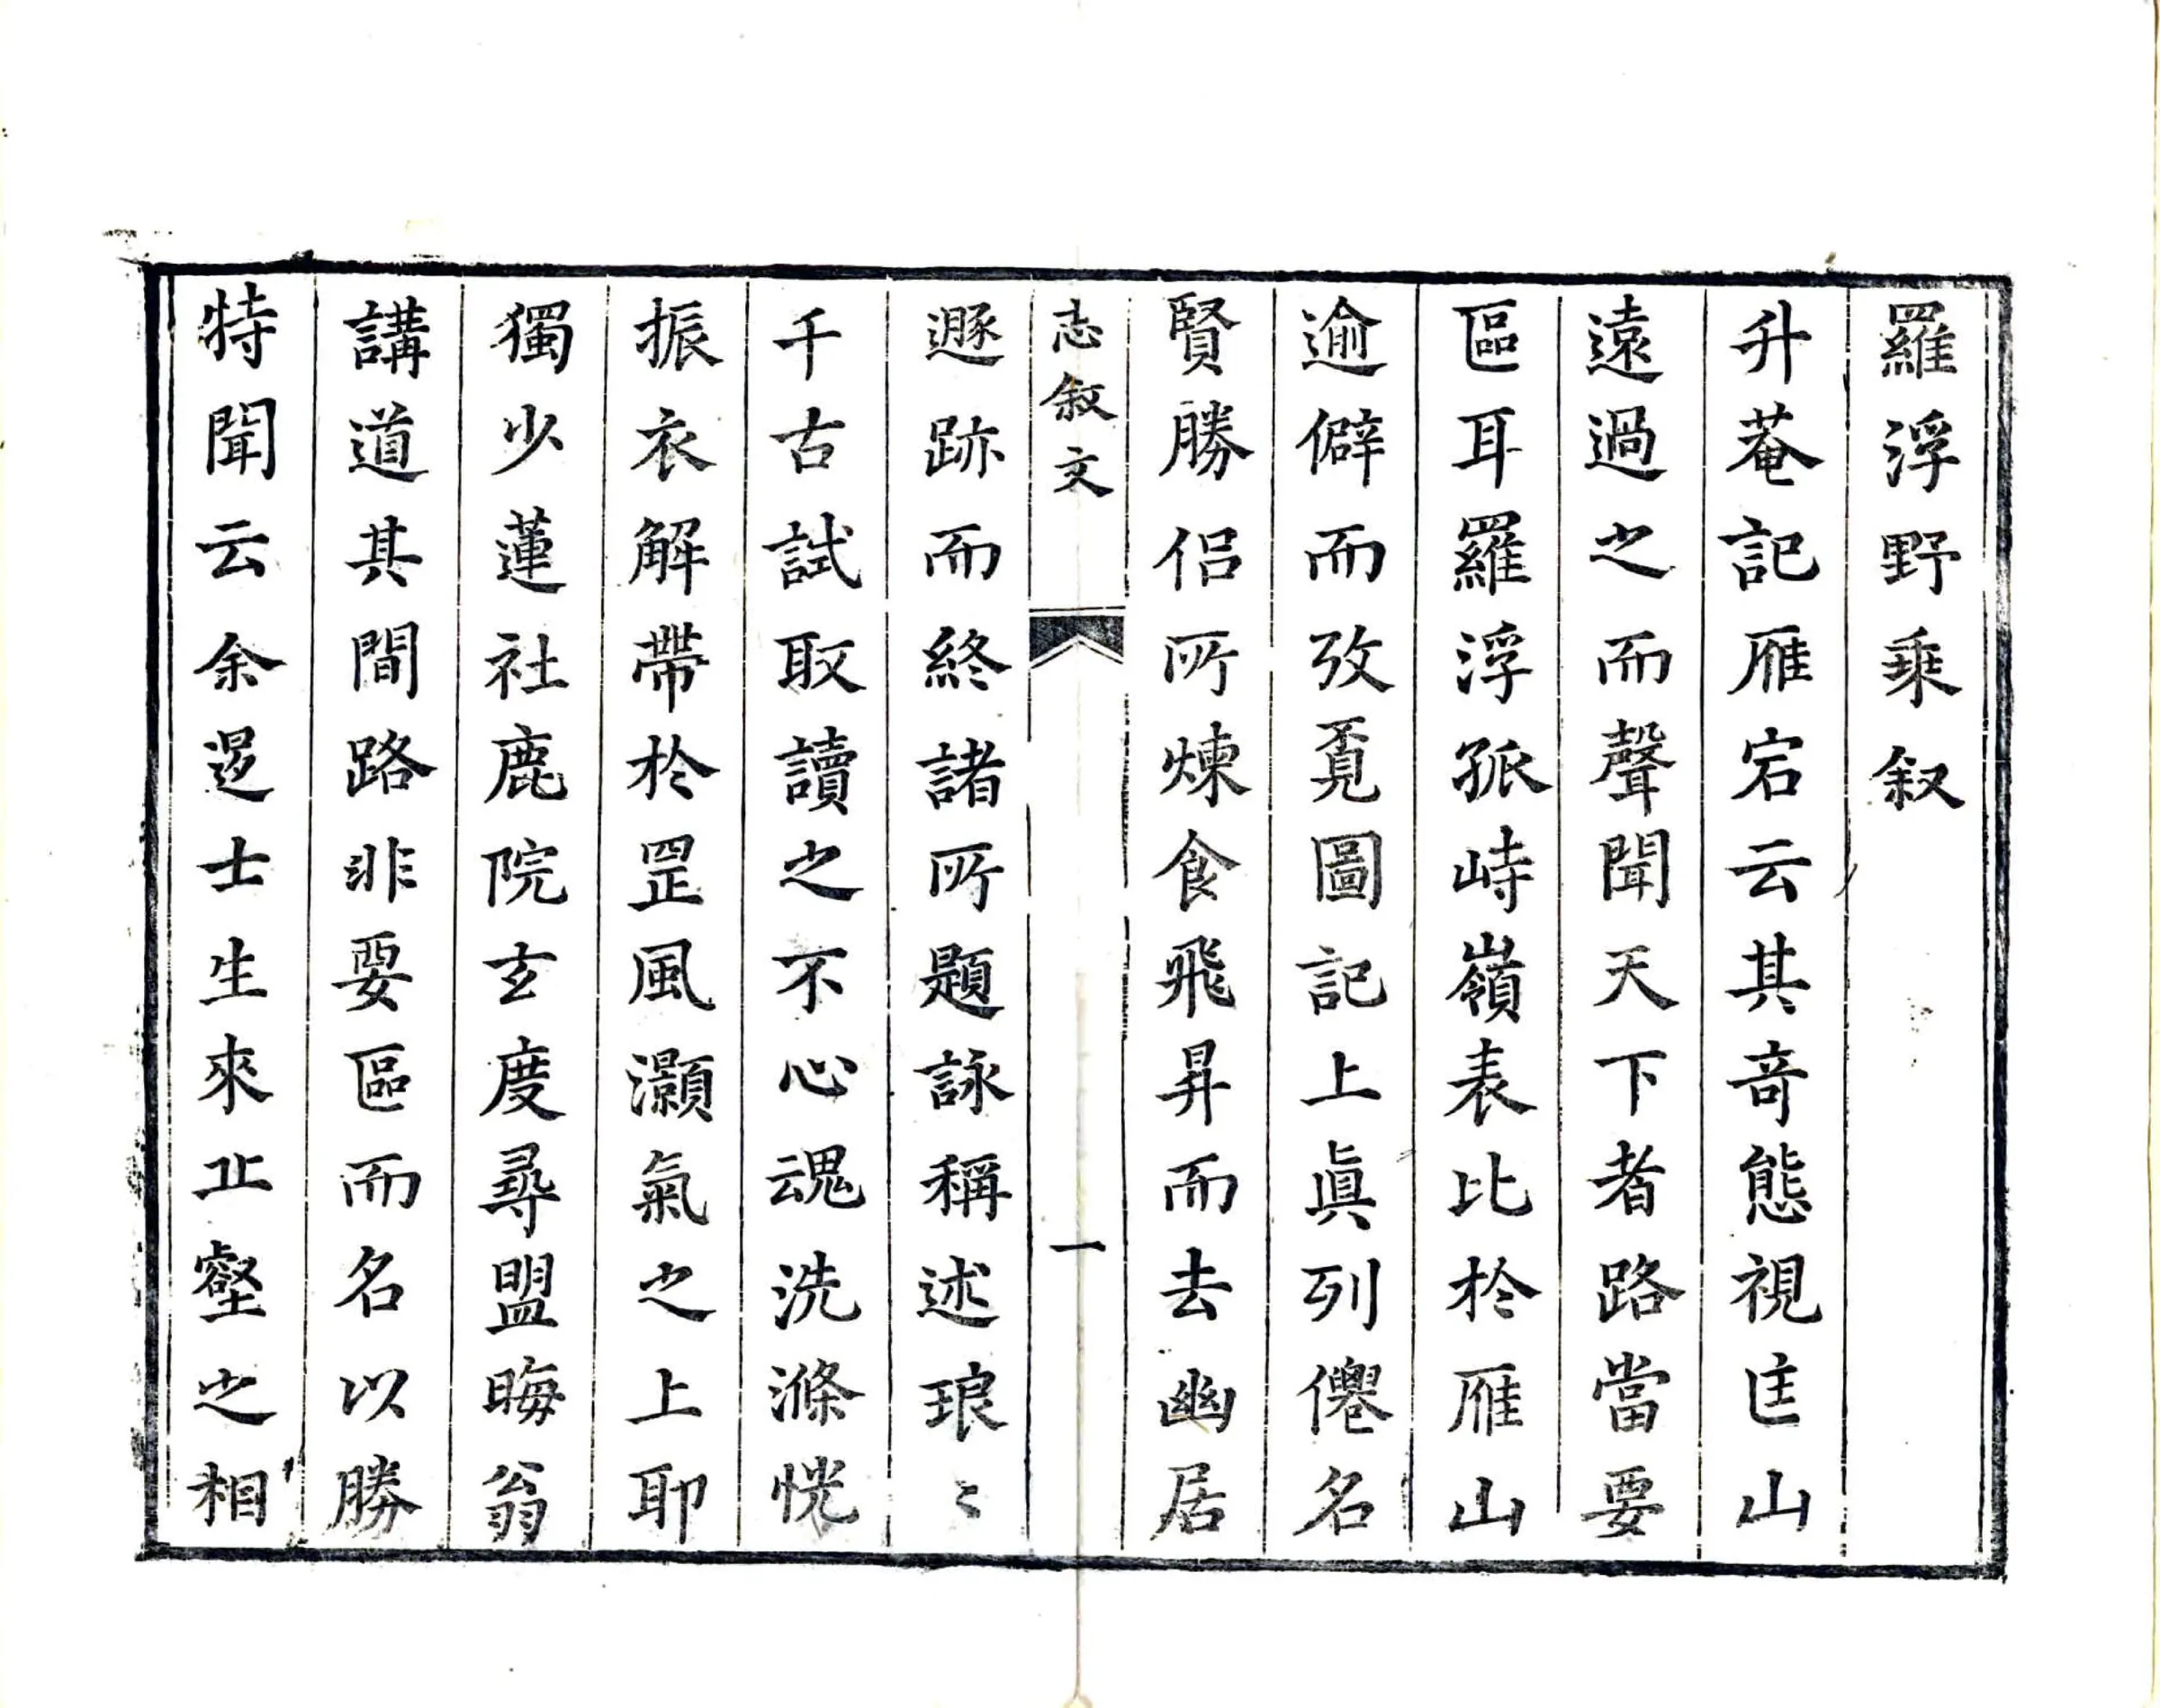 羅浮野乘叙
升菴記雁宕云其竒態視匡山
遠過之而聲聞天下者路當要
區耳羅浮孤峙嶺表比於雁山
逾僻而攷覔圖記上眞列僊名
賢勝侣所煉食飛昇而去幽居
志叙文
一
遯跡而終諸所題詠稱述琅〻
千古試取讀之不心魂洗滌恍
振衣解帶於罡風灝氣之上耶
獨少蓮社鹿院玄度尋盟晦翁
講道其間路非要區而名以勝
特聞云余逿士生來丘壑之相